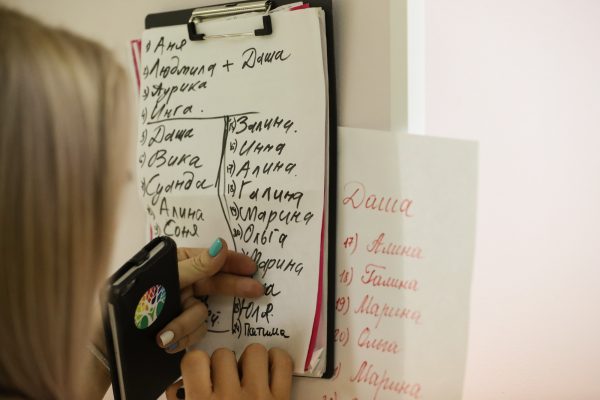 1) Аня
2) Людмила + Даша
3) Аурика
4) Инга.
5) Даша
6) Вика
7) Суанда
8) Алина
9) Соня
15) Залина.
16) Инна
17) Алина.
18) Галина
19) Марина
20) Ольга
Марина
Юля.
Патима
Даша
17) Алина
18) Галина
19) Марина
20) Ольга
Марина